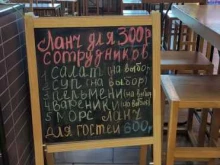 Ланч для 300р
сотрудников
1 салат (на выбор)
2 суп (на выбор)
3 пельмени (на выбор)
4 вареники (на выбор)
5 морс Ланч
для гостей 600р